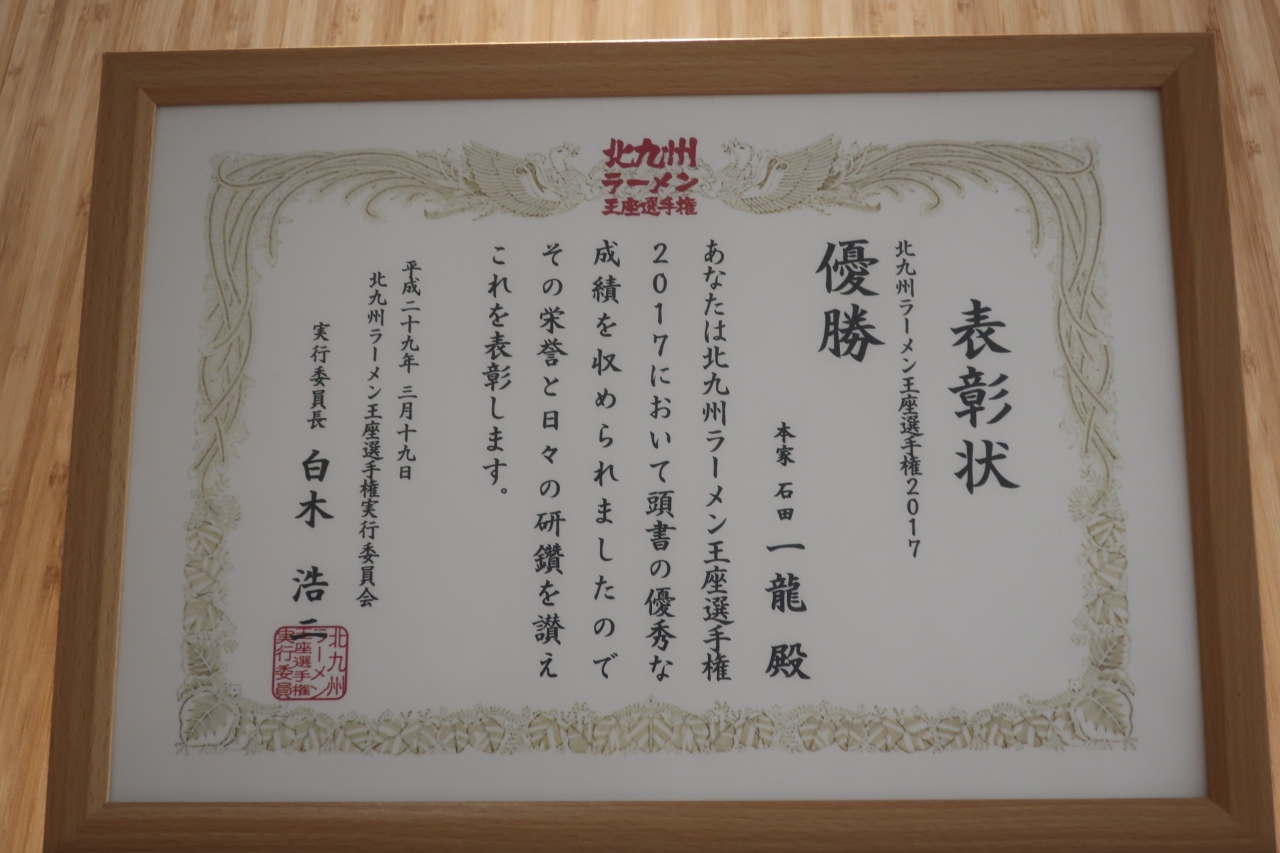 北九州
ラーメン
王座選手権
表彰状
北九州ラーメン王座選手権2017
優勝
本家 石田 一龍 殿
あなたは北九州ラーメン王座選手権
2017において頭書の優秀な
成績を収められましたので
その栄誉と日々の研鑽を讃え
これを表彰します。
平成二十九年 三月十九日
北九州ラーメン王座選手権実行委員会
実行委員長 白木 浩二
北九州
ラーメン
王座選手権
実行委員